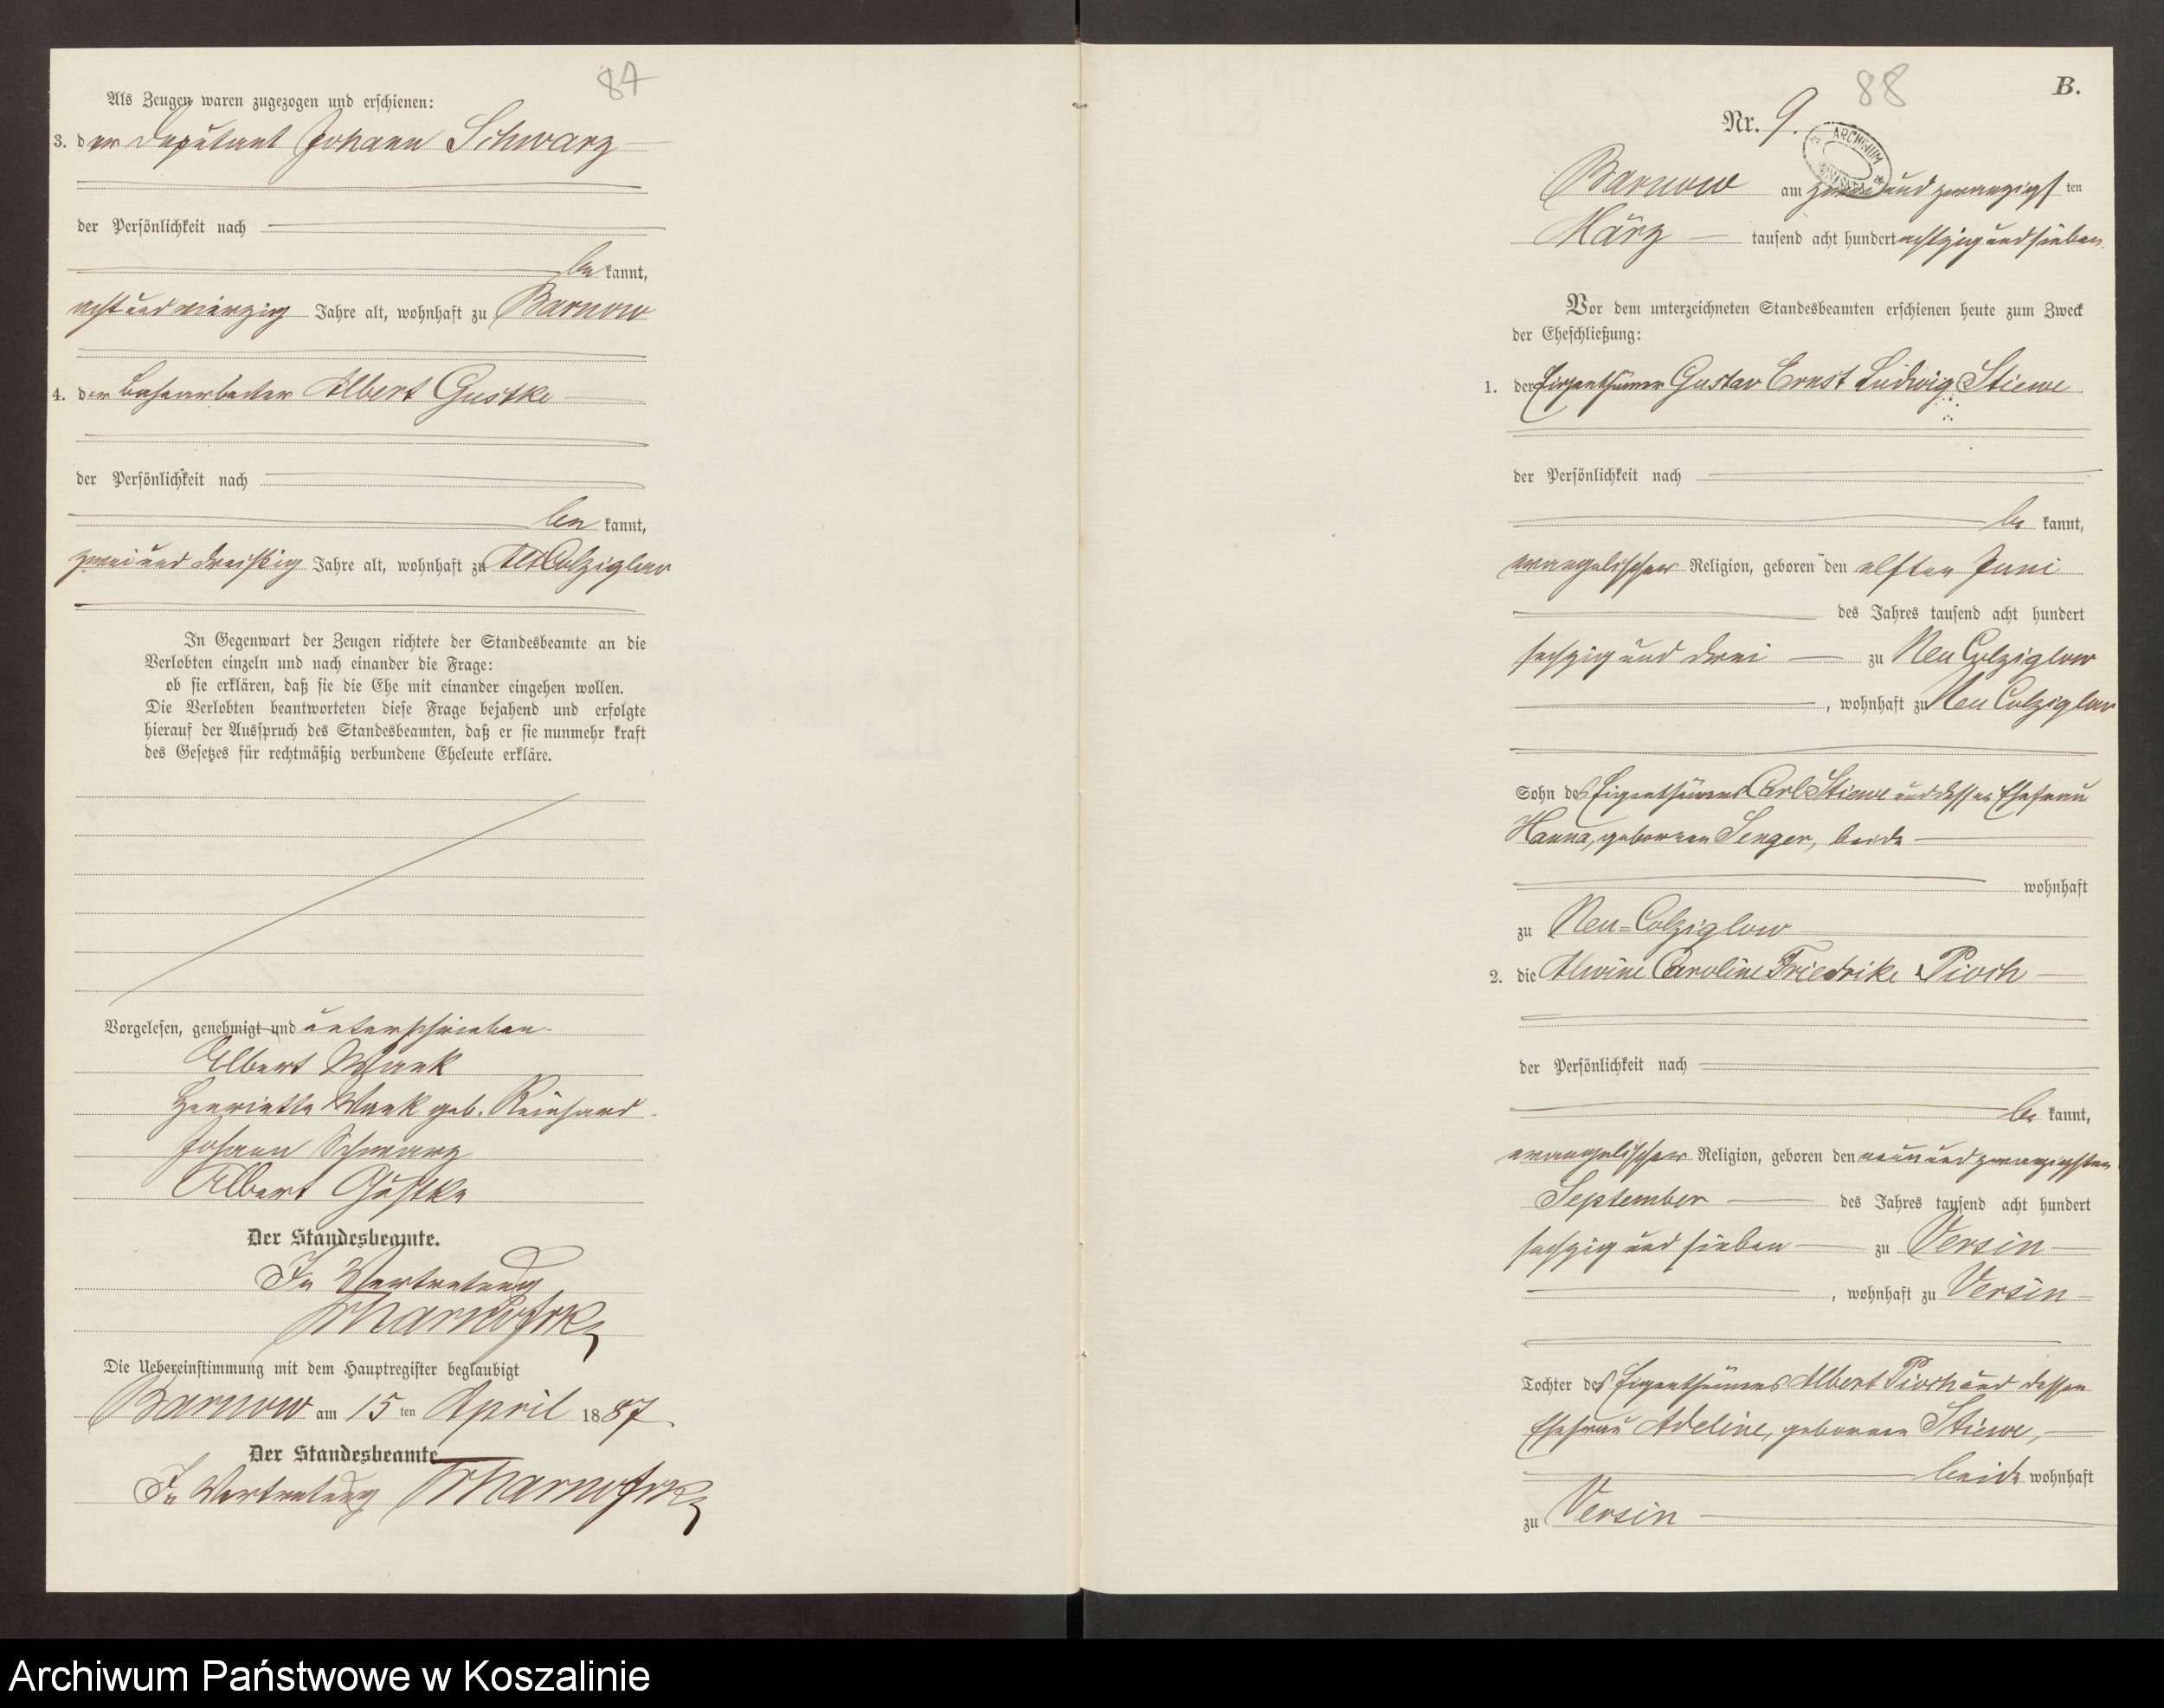 87
Als Zeugen waren zugezogen und erschienen:
3. der Deputant Johann Schwarz
der Persönlichkeit nach
be kannt,
acht und vierzig Jahre alt, wohnhaft zu Barnow
4. der Bahnarbeiter Albert Gustke
der Persönlichkeit nach
be kannt,
zwei und dreißig Jahre alt, wohnhaft zu Alt Colziglow
In Gegenwart der Zeugen richtete der Standesbeamte an die
Verlobten einzeln und nach einander die Frage:
ob sie erklären, daß sie die Ehe mit einander eingehen wollen.
Die Verlobten beantworteten diese Frage bejahend und erfolgte
hierauf der Ausspruch des Standesbeamten, daß er sie nunmehr kraft
des Gesetzes für rechtmäßig verbundene Eheleute erkläre.
Vorgelesen, genehmigt und unterschrieben.
Albert Mank
Henriette Mank geb. Reinhard
Johann Schwarz
Albert Gustke
Der Standesbeamte.
In Vertretung
Die Uebereinstimmung mit dem Hauptregister beglaubigt
Barnow am 15 ten April 1887.
Der Standesbeamte
In Vertretung
88
B.
Nr. 9.
ARCHIWUM
Barnow am zwei und zwanzigs ten
März tausend acht hundert achtzig und sieben.
Vor dem unterzeichneten Standesbeamten erschienen heute zum Zweck
der Eheschließung:
1. der Eigenthümer Gustav Ernst Ludwig Stiewe
der Persönlichkeit nach
be kannt,
evangelischer Religion, geboren den elften Juni
des Jahres tausend acht hundert
sechzig und drei zu Neu Colziglow
, wohnhaft zu Neu Colziglow
Sohn des Eigenthümers Carl Stiewe und dessen Ehefrau
Hanna, geborenen Senger, beide
wohnhaft
zu Neu=Colziglow
2. die Alwine Caroline Friedrike Pioch
der Persönlichkeit nach
be kannt,
evangelischer Religion, geboren den neun und zwanzigsten
September des Jahres tausend acht hundert
sechzig und sieben zu Versin
, wohnhaft zu Versin
Tochter des Eigenthümers Albert Pioch und dessen
Ehefrau Adeline, geborenen Stiewe,
beide wohnhaft
zu Versin
Archiwum Państwowe w Koszalinie